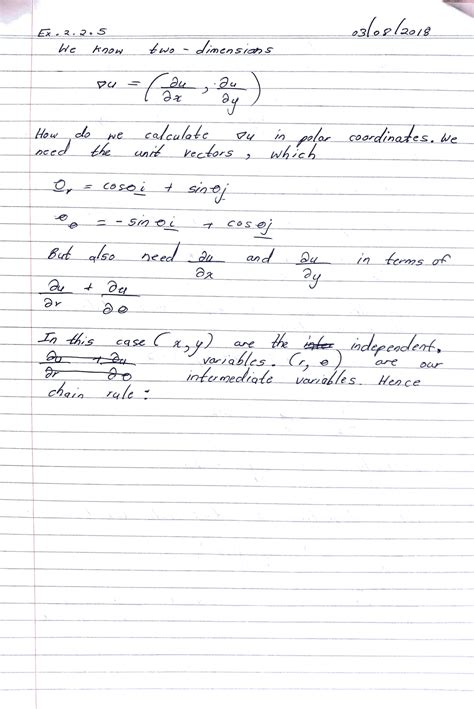 Ex. 2.2.5 03/08/2018
We know two-dimensions
∇u = (∂u/∂x , ∂u/∂y)
How do we calculate ∇u in polar coordinates. We
need the unit vectors, which
e_r = cosθi + sinθj
e_θ = -sinθi + cosθj
But also need ∂u/∂x and ∂u/∂y in terms of
∂u/∂r + ∂u/∂θ
In this case (x,y) are the independent.
∂u/∂r + ∂u/∂θ variables. (r, θ) are our
intermediate variables. Hence
chain rule: